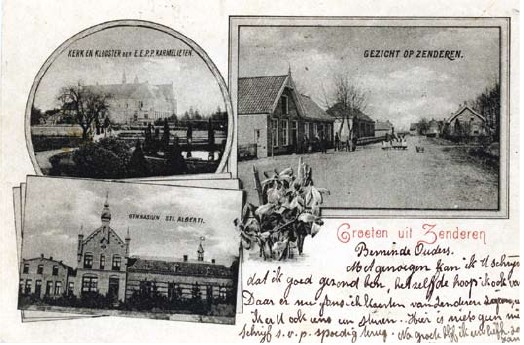 KERK EN KLOOSTER DER E.E.P.P. KARMILIETEN.
GEZICHT OP ZENDEREN.
GYMNASIUM STI ALBERTI.
Groeten uit Zenderen
Beminde Ouders.
Met genoegen kan ik U schrijven
dat ik goed gezond ben, hetzelfde hoop ik ook van
Daar er nu juist kaarten van Zenderen
ik er U ook eens een sturen. Hier is niets geen
Schrijf s.v.p. spoedig terug. Na groete blijf ik